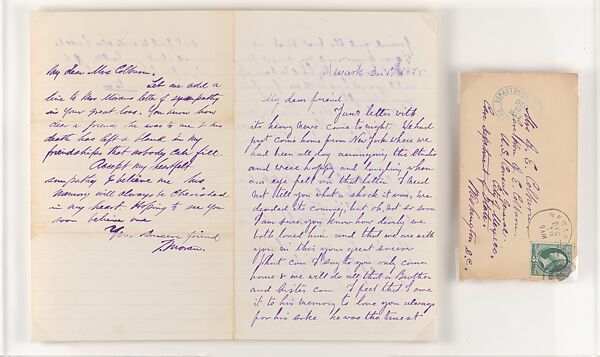 My dear Mrs Colburn,
Let me add a
line to Mrs Morans letter of sympathy
in your great loss. You know how
dear a friend he was to me & his
death has left a blank in my
friendships that nobody can fill.
Accept my heartfelt
sympathy & believe me his
memory will always be cherished
in my heart. Hoping to see you
soon believe me
Your sincere friend
TMoran.
Newark Dec 17th 1878
My dear friend
Your letter with
its heavy news came to night. We had
just come home from New York where we
had been all day arranging the Studio
and were happy and laughing when
our eyes fell on that letter. I need
not tell you what a shock it was, we
dreaded its coming, but oh not so soon
I am sure you know how dearly we
both loved him and that we are with
you in this your great sorrow
What can I say to you only come
home & we will do all that a Brother
and Sister can I feel that I owe
it to his memory to love you always
for his sake he was the truest
DEPARTMENT
Mrs J. E. Colburn
U.S. Consulate
City of Mexico,
Care department of State.
Washington D.C.
NEWARK